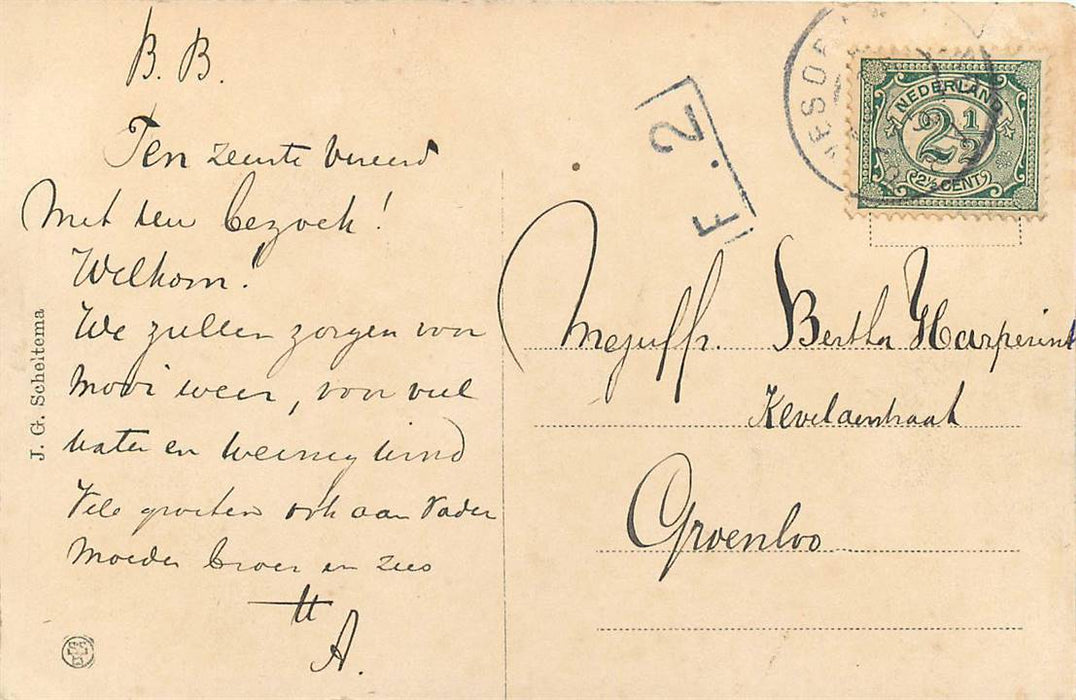 B. B.
Ten zeerste vereerd
Met den bezoek!
Welkom!
We zullen zorgen voor
mooi weer, voor veel
water en weinig wind
Vele groeten ook aan Vader
Moeder broer en zus
A.
J. G. Scheltema
F. 2
NEDERLAND
2 1/2
2½ CENT
Mejuffr. Bertha Harperink
Kevelderstraat
Groenloo